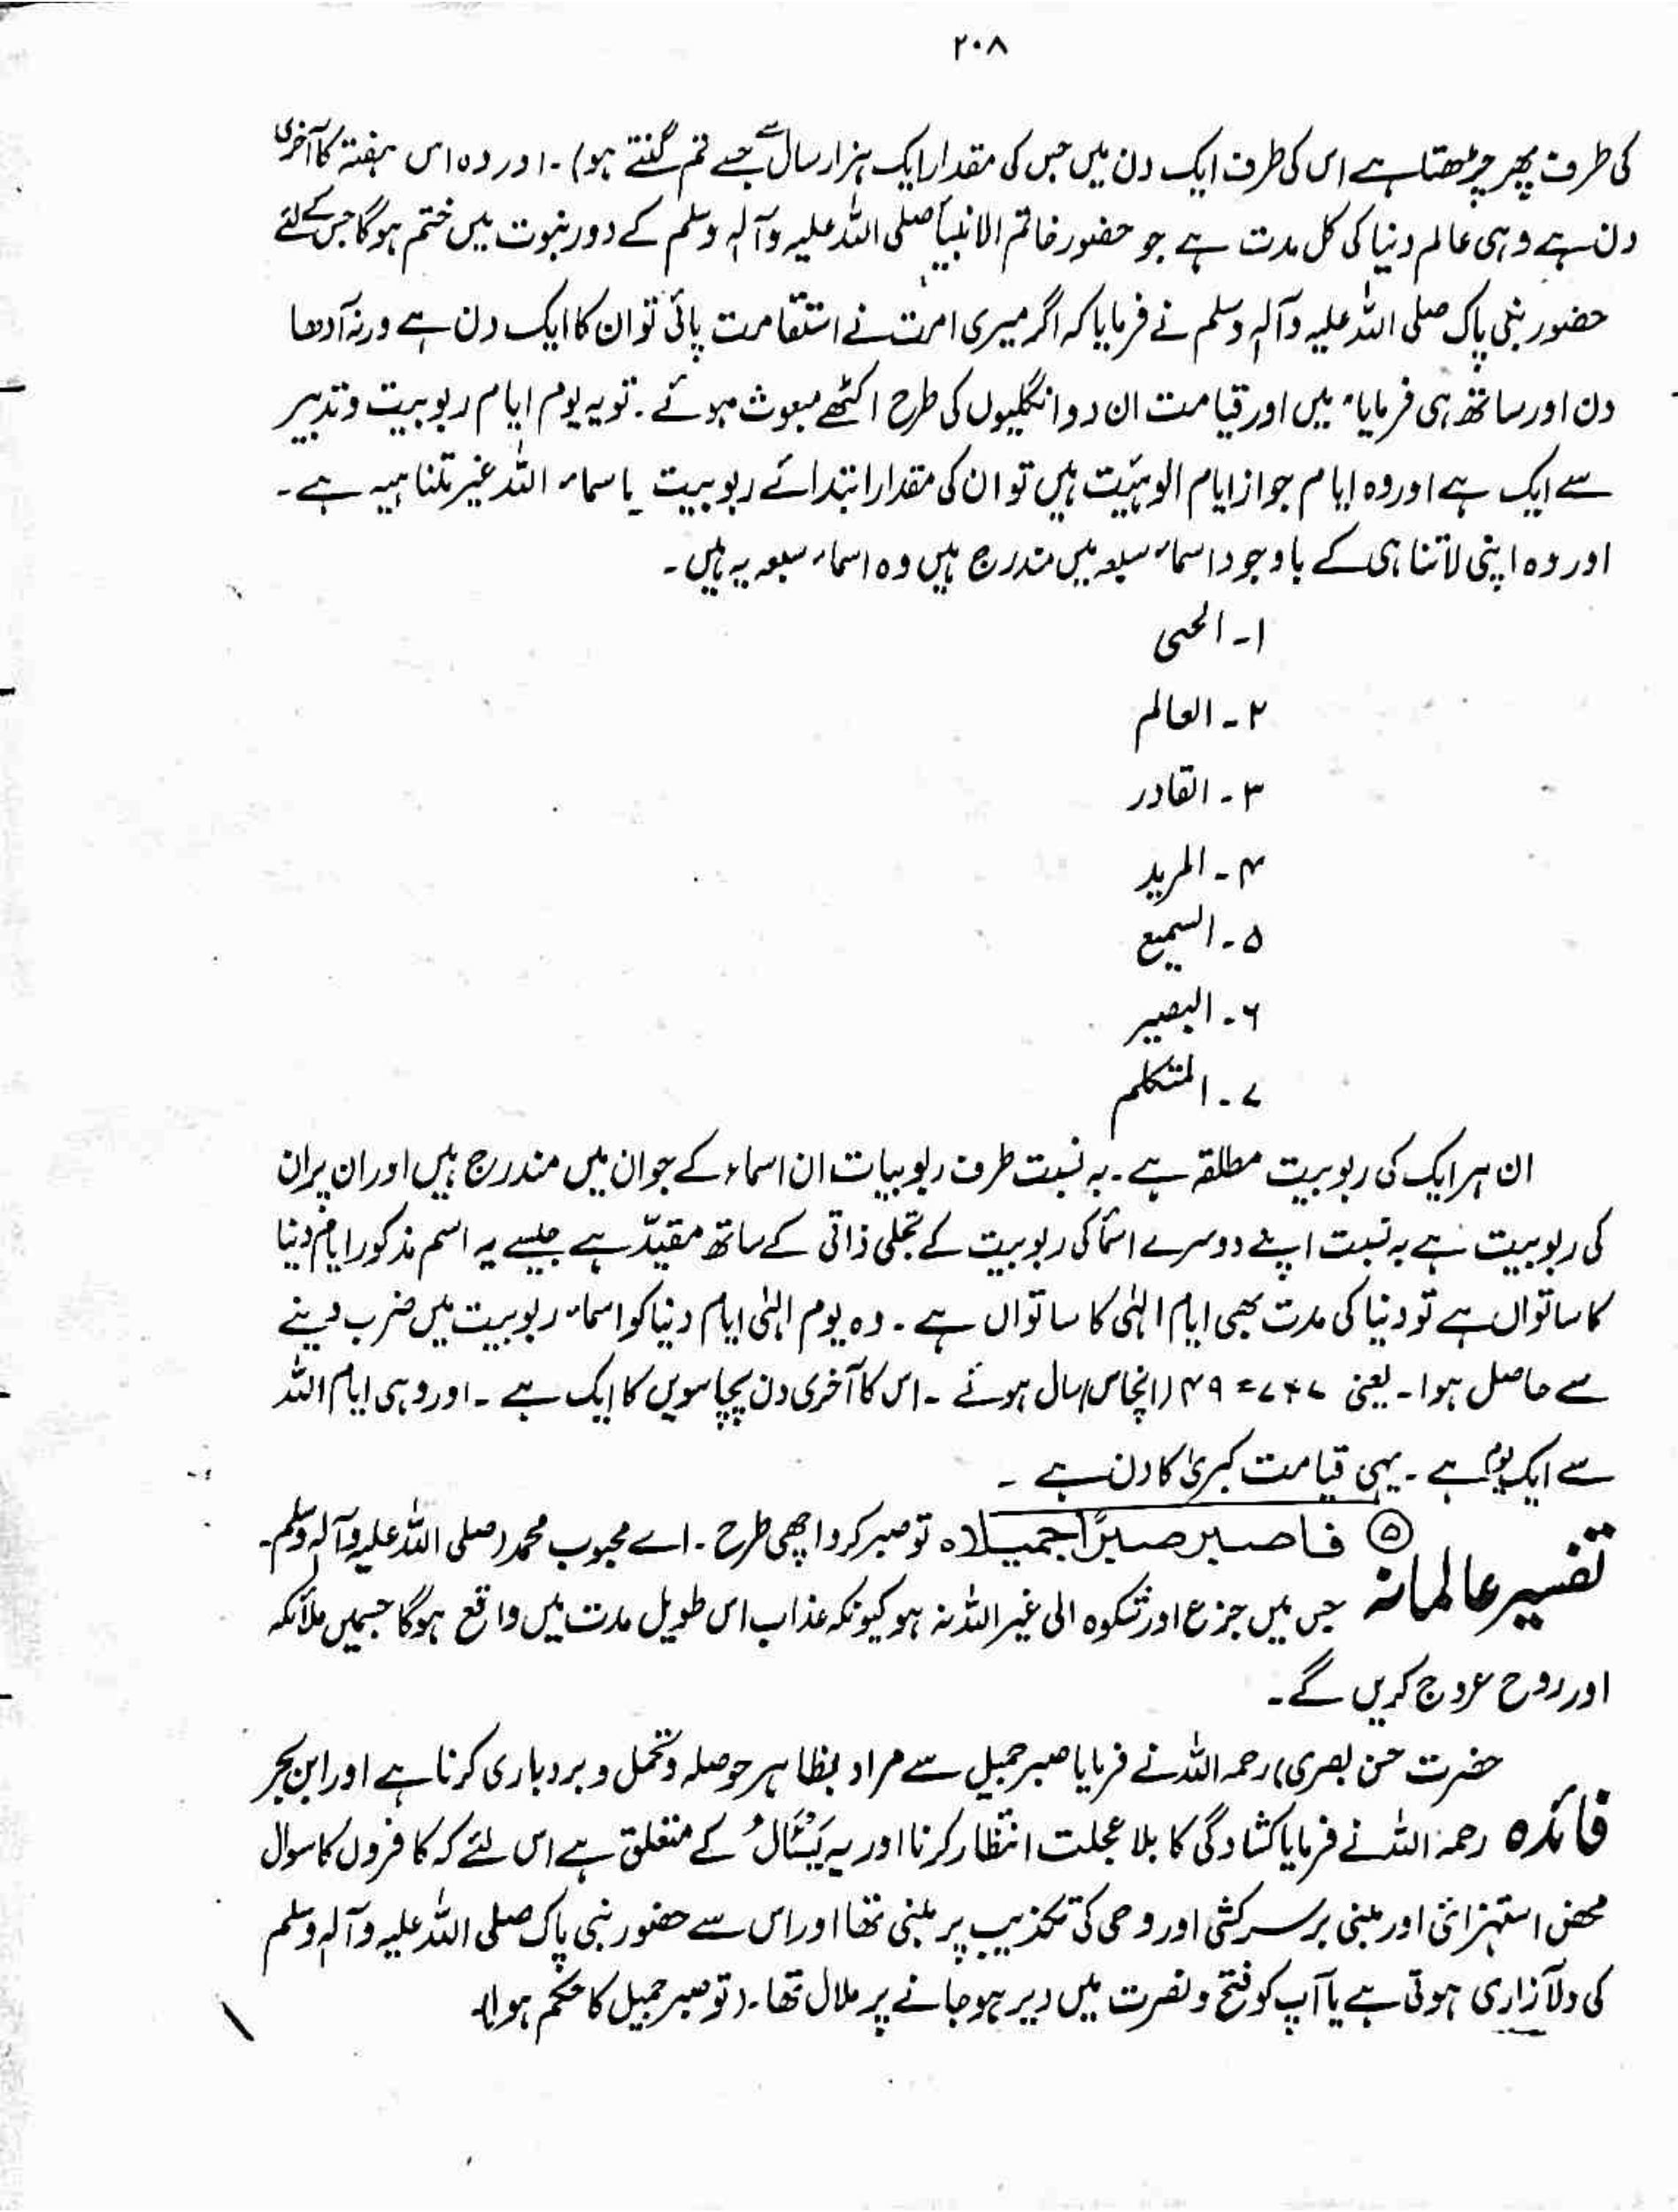 ۲۰۸
کی طرف پھر چڑھتا ہے اس کی طرف ایک دن میں جس کی مقدار ایک ہزار سال ہے جسے تم گنتے ہو)۔ اور وہ اس ہفتہ کا آخری
دن ہے وہی عالم دنیا کی کل مدت ہے جو حضور خاتم الانبیاؑ صلی اللہ علیہ وآلہٖ وسلم کے دور نبوت میں ختم ہوگا جس کے لئے
حضور نبی پاک صلی اللہ علیہ وآلہٖ وسلم نے فرمایا کہ اگر میری امت نے استقامت پائی تو ان کا ایک دن ہے ورنہ آدھا
دن اور ساتھ ہی فرمایا، میں اور قیامت ان دو انگلیوں کی طرح اکٹھے مبعوث ہوئے۔ تو یہ یوم ایام ربوبیت و تدبیر
سے ایک ہے اور وہ ایام جو از ایام الوہیّت ہیں تو ان کی مقدار ابتدائے ربوبیت باسماء اللہ غیر متناہیہ ہے۔
اور وہ اپنی لاتناہی کے باوجود اسماء سبعہ میں مندرج ہیں وہ اسماء سبعہ یہ ہیں۔
۱۔ الحی
۲۔ العالم
۳۔ القادر
۴۔ المرید
۵۔ السمیع
۶۔ البصیر
۷۔ المتکلم
ان ہر ایک کی ربوبیت مطلقہ ہے۔ بہ نسبت طرف ربوبیات ان اسماء کے جو ان میں مندرج ہیں اور ان پر ان
کی ربوبیت ہے بہ نسبت اپنے دوسرے اسمأ کی ربوبیت کے تجلی ذاتی کے ساتھ مقیدّ ہے جیسے یہ اسم مذکور ایام دنیا
کا ساتواں ہے تو دنیا کی مدت بھی ایام الہٰی کا ساتواں ہے۔ وہ یوم الہٰی ایام دنیا کو اسماء ربوبیت میں ضرب دینے
سے حاصل ہوا۔ یعنی ۷×۷=۴۹ (انچاس) سال ہوئے۔ اس کا آخری دن پچاسویں کا ایک ہے۔ اور وہی ایام اللہ
سے ایک یوم ہے۔ یہی قیامت کبریٰ کا دن ہے۔
تفسیر عالمانہ ⑤ فاصبر صبرًا جمیلا ہ تو صبر کرو اچھی طرح۔ اے محبوب محمد (صلی اللہ علیہ وآلہ وسلم۔
جس میں جزع اور شکوہ الی غیر اللہ نہ ہو کیونکہ عذاب اس طویل مدت میں واقع ہوگا جسمیں ملائکہ
اور روح عروج کریں گے۔
حضرت حسن بصری) رحمہ اللہ نے فرمایا صبر جمیل سے مراد بظاہر حوصلہ و تحمل و بردباری کرنا ہے اور ابن بحر
فائدہ رحمہ اللہ نے فرمایا کشادگی کا بلا عجلت انتظار کرنا اور یہ یَسْئَالُ کے متعلق ہے اس لئے کہ کافروں کا سوال
محض استہزائی اور مبنی بر سرکشی اور وحی کی تکذیب پر مبنی تھا اور اس سے حضور نبی پاک صلی اللہ علیہ وآلہ وسلم
کی دلآزاری ہوتی ہے یا آپ کو فتح و نصرت میں دیر ہو جانے پر ملال تھا۔ (تو صبر جمیل کا حکم ہوا)۔